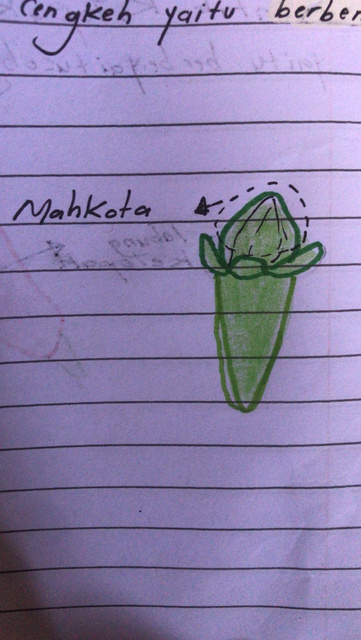 Cengkeh yaitu berben
Mahkota